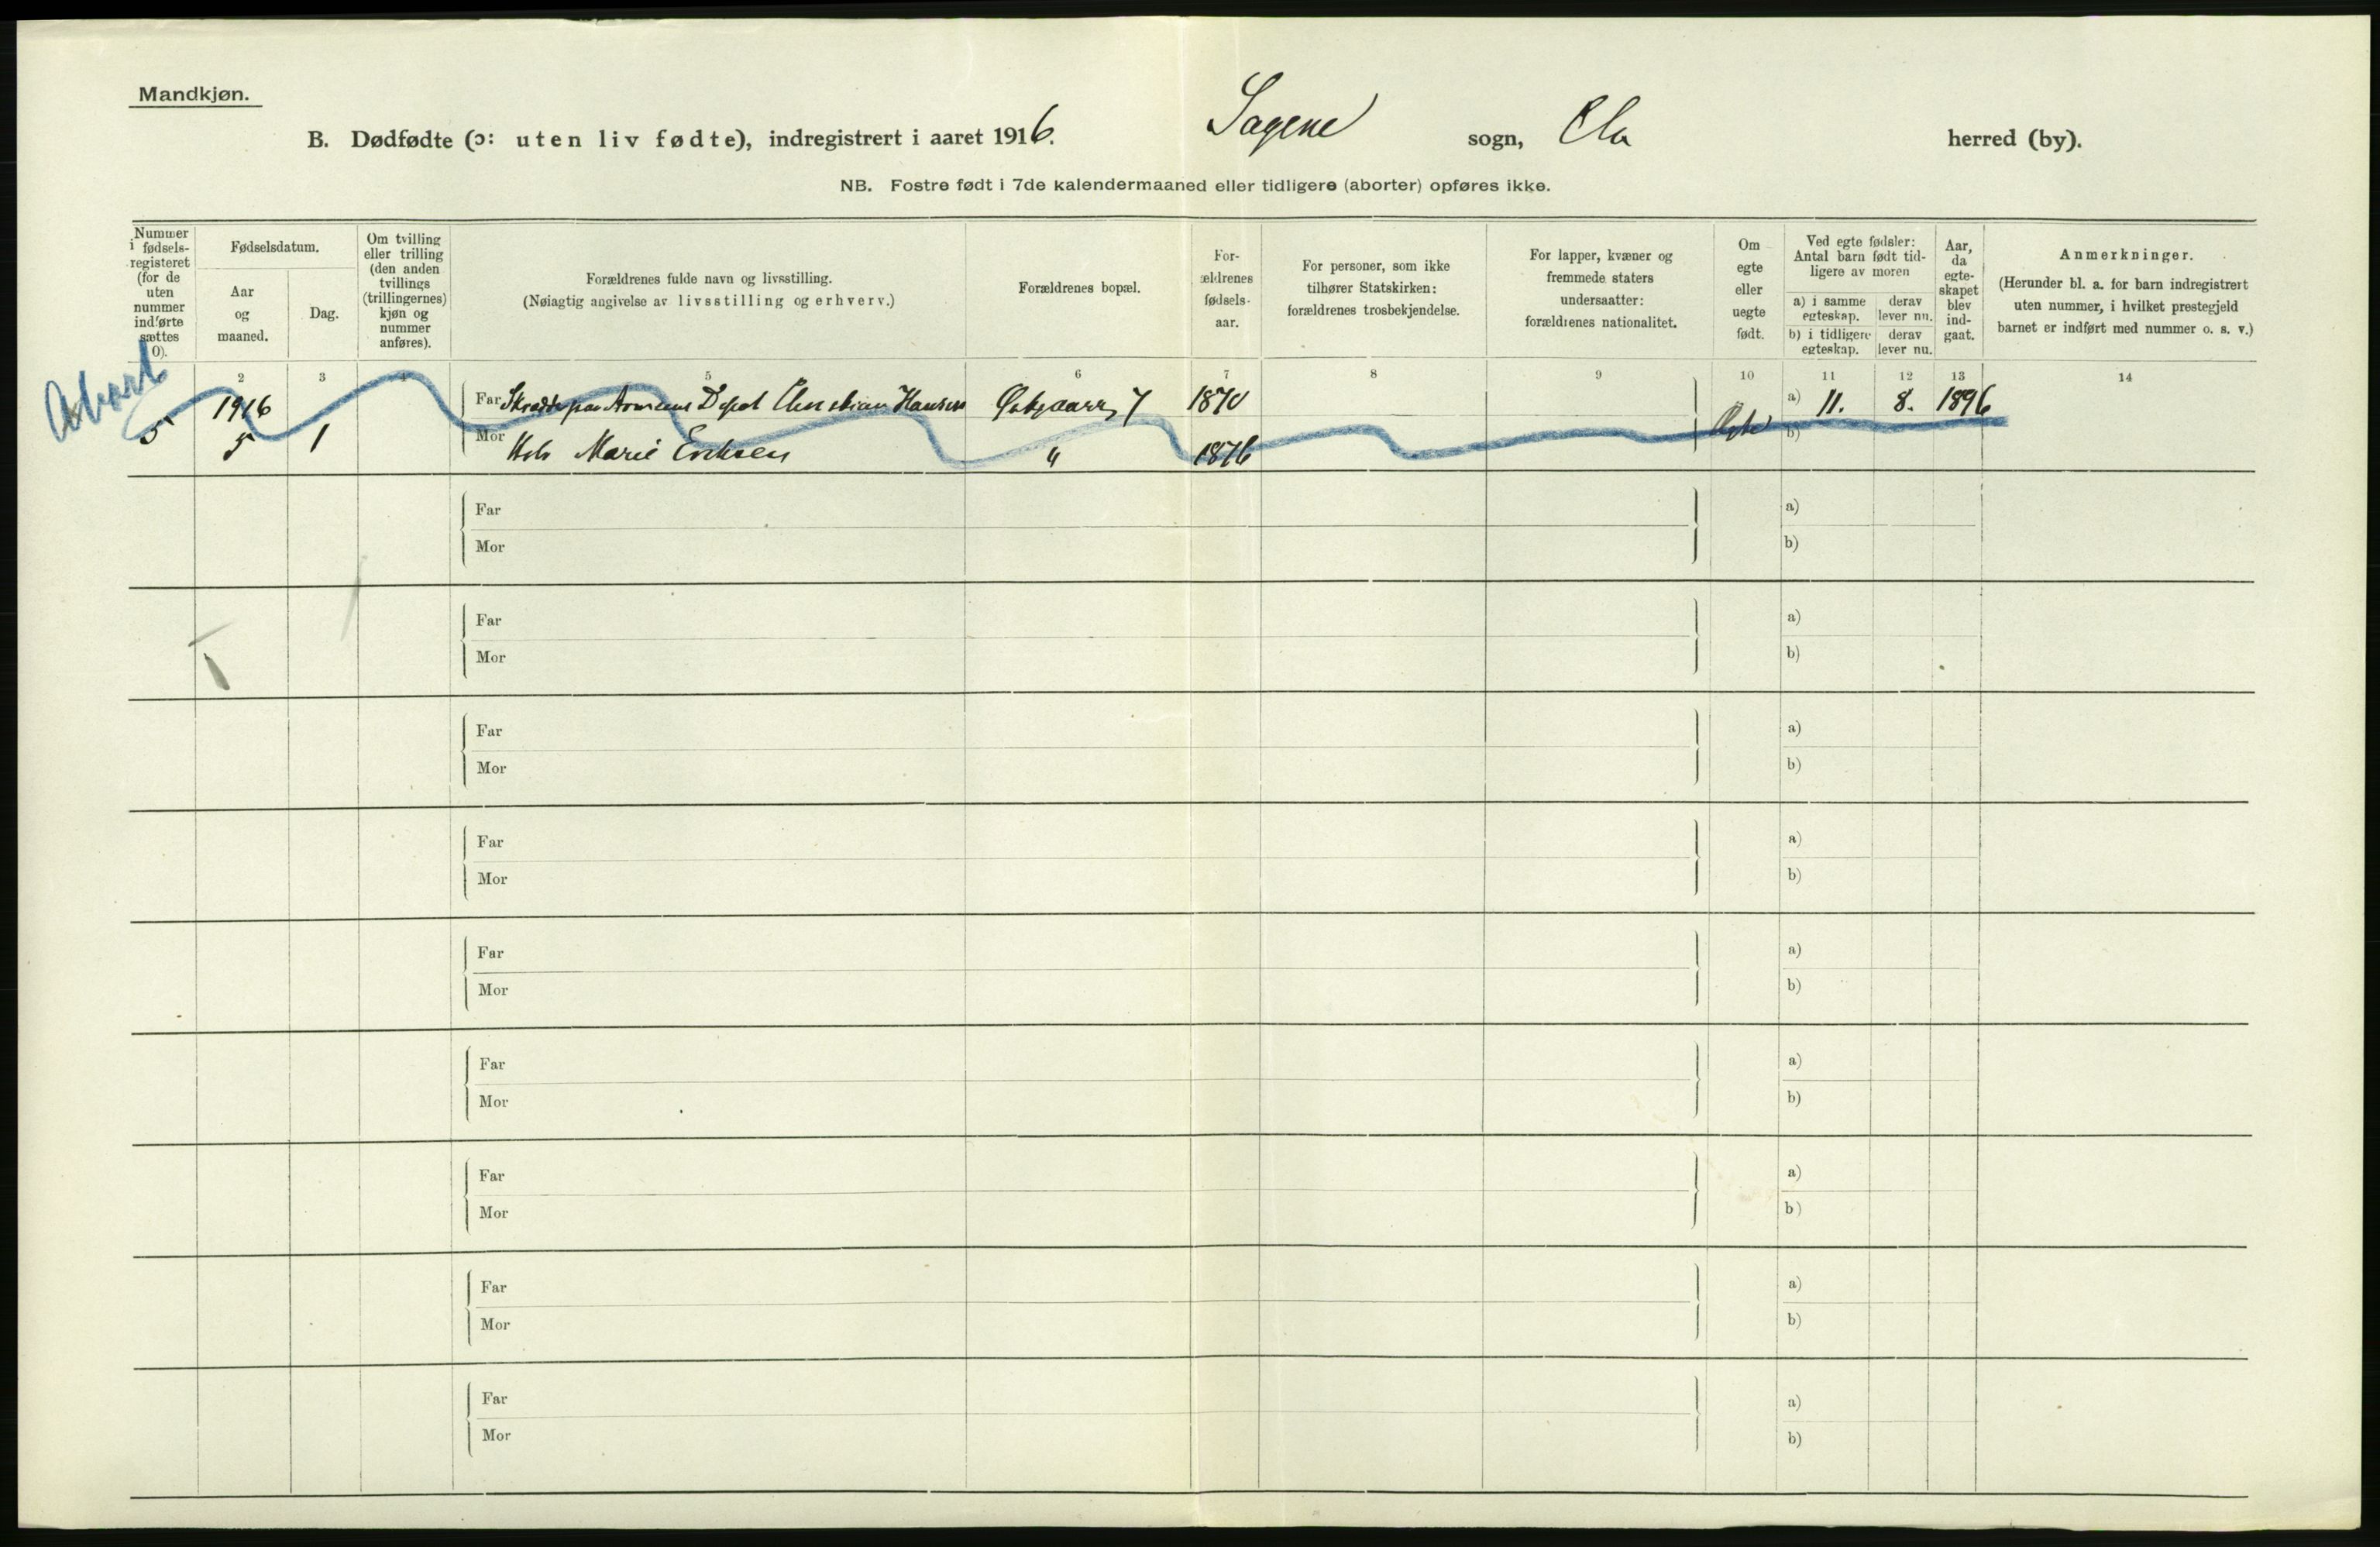 Mandkjøn.
B. Dødfødte (ɔ: uten liv fødte), indregistrert i aaret 1916. Sagene sogn, Kra herred (by).
NB. Fostre født i 7de kalendermaaned eller tidligere (aborter) opføres ikke.
Nummer
i fødsels-
registeret
(for de
uten
nummer
indførte
sættes
0).
Fødselsdatum.
Aar
og
maaned.
Dag.
Om tvilling
eller trilling
(den anden
tvillings
(trillingernes)
kjøn og
nummer
anføres).
Forældrenes fulde navn og livsstilling.
(Nøiagtig angivelse av livsstilling og erhverv.)
Forældrenes bopæl.
For-
ældrenes
fødsels-
aar.
For personer, som ikke
tilhører Statskirken:
forældrenes trosbekjendelse.
For lapper, kvæner og
fremmede staters
undersaatter:
forældrenes nationalitet.
Om
egte
eller
uegte
født.
Ved egte fødsler:
Antal barn født tid-
ligere av moren
a) i samme
egteskap.
derav
lever nu.
b) i tidligere
egteskap.
derav
lever nu.
Aar,
da
egte-
skapet
blev
ind-
gaat.
Anmerkninger.
(Herunder bl. a. for barn indregistrert
uten nummer, i hvilket prestegjeld
barnet er indført med nummer o. s. v.)
2 3 4 5 6 7 8 9 10 11 12 13 14
Abort
5 1916 5 1
Far Skrædder paa Armeens Depot Christian Hansen 7 1870
Mor Marie Eriksen " 1876
Egte a) 11. 8. 1896
b)
Far a)
Mor b)
Far a)
Mor b)
Far a)
Mor b)
Far a)
Mor b)
Far a)
Mor b)
Far a)
Mor b)
Far a)
Mor b)
Far a)
Mor b)
Far a)
Mor b)